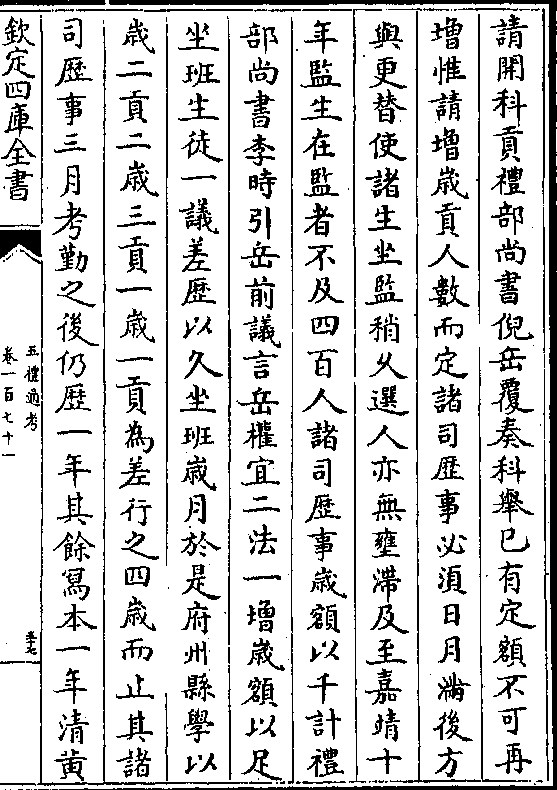 請開科貢禮部尚書倪岳覆奏科舉已有定額不可再
増惟請増歳貢人數而定諸司歴事必須日月滿後方
與更替使諸生坐監稍乆選人亦無壅滯及至嘉靖十
年監生在監者不及四百人諸司歴事歳額以千計禮
部尚書李時引岳前議言岳權宜二法一増歳額以足
坐班生徒一議差歴以久坐班歳月於是府州縣學以
歳二貢二歳三貢一歳一貢為差行之四歳而止其諸
司歴事三月考勤之後仍歴一年其餘寫本一年清黄
欽定四庫全書
五禮通考
卷一百七十一